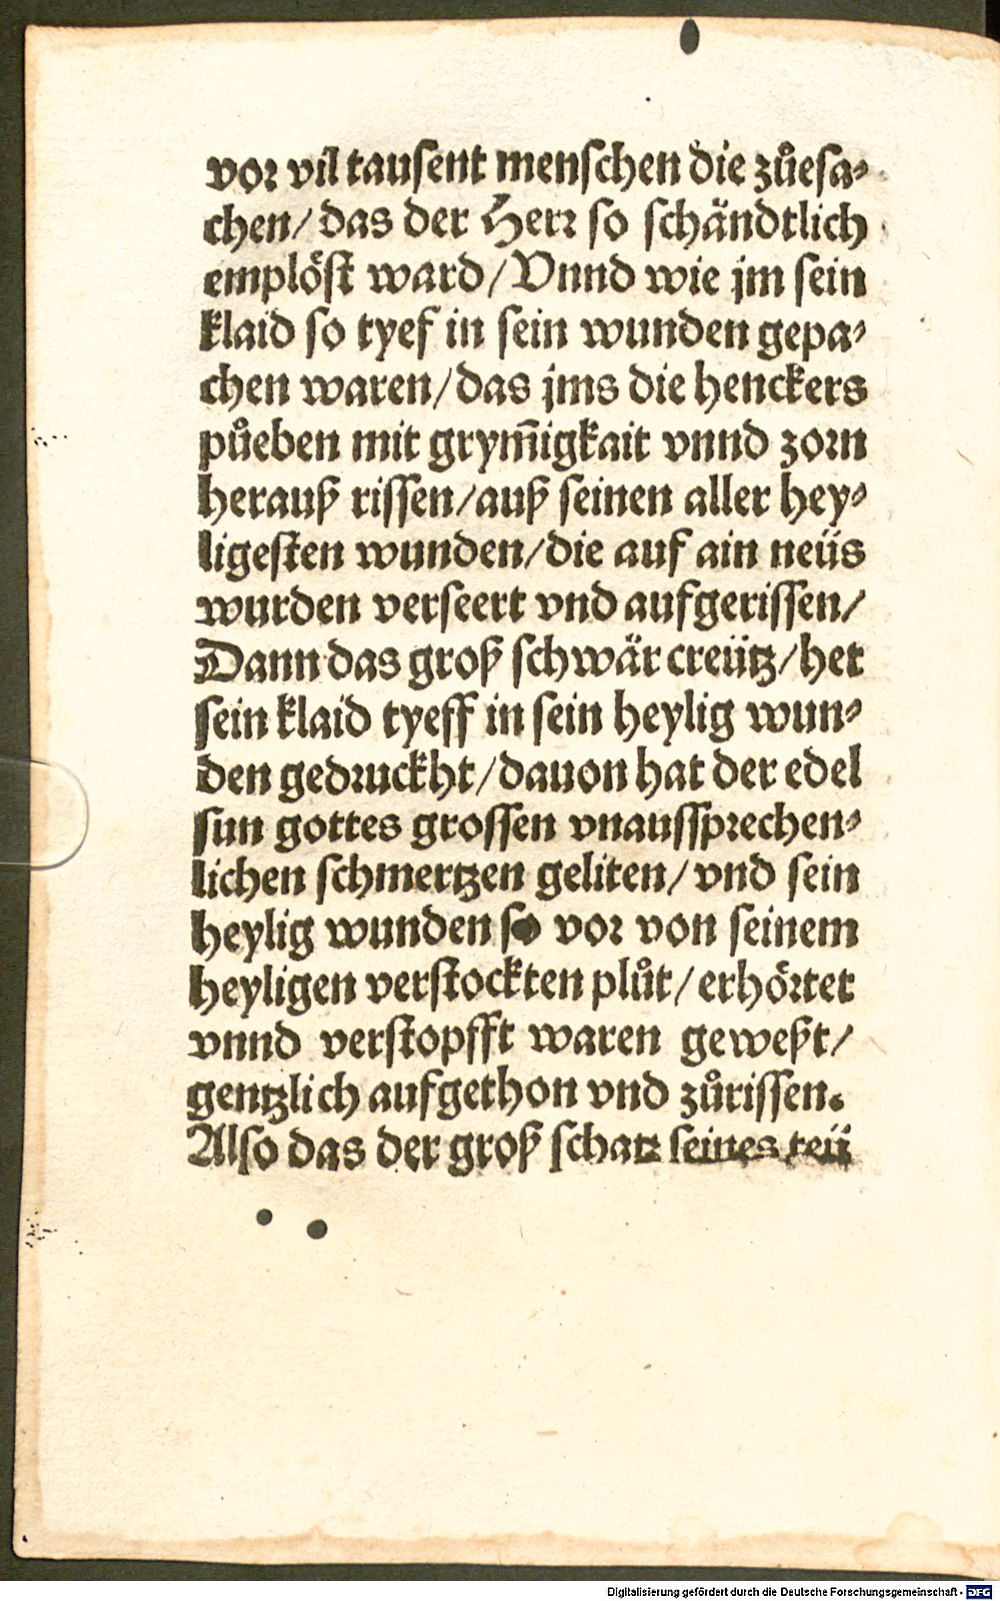 vor vil tausent menschen die zůesa⸗
chen/ das der Herr so schändtlich
emplöst ward/ Vnnd wie jm sein
klaid so tyef in sein wunden gepa⸗
chen waren/ das jms die henckers
půeben mit grym̄igkait vnnd zorn
herauß rissen/ auß seinen aller hey⸗
ligesten wunden/ die auf ain neüs
wurden verseert vnd aufgerissen/
Dann das groß schwär creütz/ het
sein klaid tyeff in sein heylig wun⸗
den gedruckht/ dauon hat der edel
sun gottes grossen vnaussprechen⸗
lichen schmertzen geliten/ vnd sein
heylig wunden so vor von seinem
heyligen verstockten plůt/ erhörtet
vnnd verstopfft waren geweßt/
gentzlich aufgethon vnd zůrissen.
Also das der groß schatz seines teü
Digitalisierung gefördert durch die Deutsche Forschungsgemeinschaft - DFG